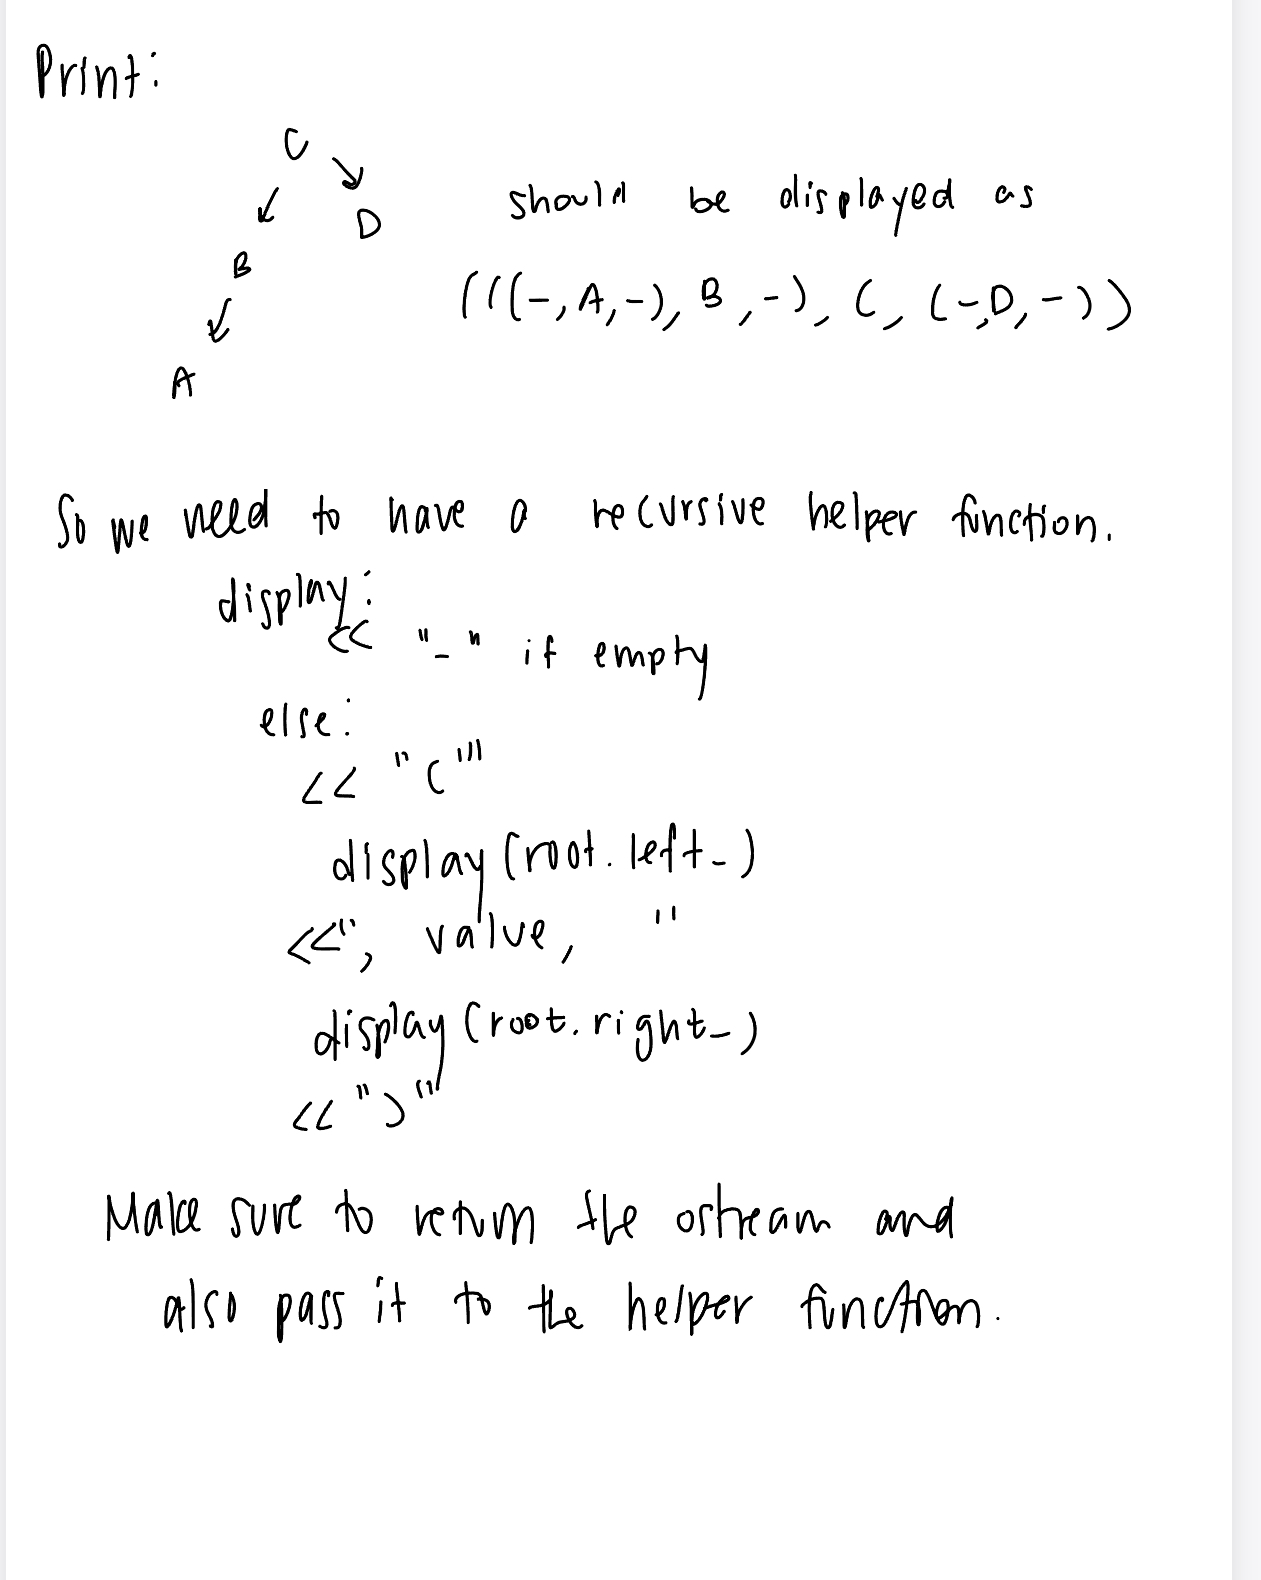 Print:
C
D
B
A
should be displayed as
(((-,A,-), B,-), C, (-,D,-))
So we need to have a recursive helper function.
display:
<< "-" if empty
else:
<< "("
display(root.left_)
<<", value, "
display(root.right_)
<<")"
Make sure to return the ostream and
also pass it to the helper function.